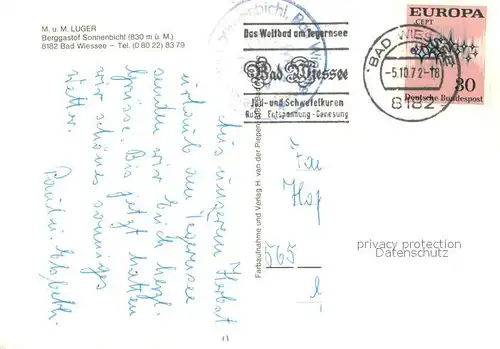 M. u. M. LUGER
Berggasthof Sonnenbichl (830 m ü. M.)
8182 Bad Wiessee – Tel. (0 80 22) 83 79
Sonnenbichl, Bad Wiessee
Das Weltbad am Tegernsee
Bad Wiessee
Jod- und Schwefelkuren
Ruhe Entspannung Genesung
BAD WIESSEE
-5.10.72-18
8182
EUROPA
CEPT
30
Deutsche Bundespost
Aus unserem Herbst
urlaub am Tegernsee
senden wir Euch herzl.
Grüsse. Bis jetzt hatten
wir schönes sonniges
Wetter.
Paul u. Elisabeth
Farbaufnahme und Verlag H. van der Piepen
Fam
565
privacy protection
Datenschutz